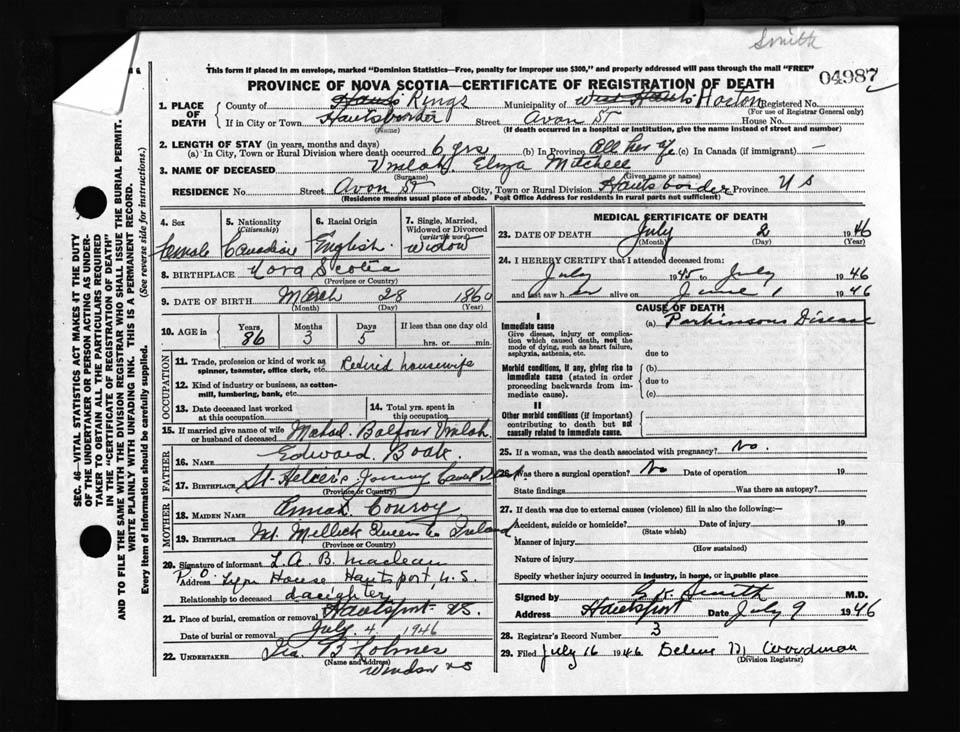 Smith
This form if placed in an envelope, marked "Dominion Statistics—Free, penalty for improper use $300," and properly addressed will pass through the mail "FREE"
04987
PROVINCE OF NOVA SCOTIA—CERTIFICATE OF REGISTRATION OF DEATH
1. PLACE OF DEATH County of Hants Kings Municipality of West Hants Horton Registered No.
(For use of Registrar General only)
If in City or Town Hantsborder Street Avon St House No.
(Name) (If death occurred in a hospital or institution, give the name instead of street and number)
2. LENGTH OF STAY (in years, months and days)
(a) In City, Town or Rural Division where death occurred 6 yrs (b) In Province All her life (c) In Canada (if immigrant) —
3. NAME OF DECEASED Umlah, Eliza Mitchell
(Surname) (Given name or names)
RESIDENCE No. Street Avon St City, Town or Rural Division Hantsborder Province N S
(Residence means usual place of abode. Post Office Address for residents in rural parts not sufficient)
4. Sex Female
5. Nationality (Citizenship) Canadian
6. Racial Origin English.
7. Single, Married, Widowed or Divorced (write the word) Widow
8. BIRTHPLACE Nova Scotia
(Province or Country)
9. DATE OF BIRTH March 28 1860
(Month) (Day) (Year)
10. AGE in Years 86 Months 3 Days 5 If less than one day old hrs. or min.
OCCUPATION
11. Trade, profession or kind of work as spinner, teamster, office clerk, etc. Retired housewife
12. Kind of industry or business, as cotton-mill, lumbering, bank, etc.
13. Date deceased last worked at this occupation
14. Total yrs. spent in this occupation
15. If married give name of wife or husband of deceased Balfour Umlah.
FATHER
16. NAME Edward Boak
17. BIRTHPLACE St. Jersey
(Province or Country)
MOTHER
18. MAIDEN NAME Conroy
19. BIRTHPLACE Queens Co Ireland
(Province or Country)
20. Signature of informant L. A. B. Maclean
P.O. Address House Hantsport, N.S.
Relationship to deceased daughter
21. Place of burial, cremation or removal Hantsport N.S.
Date of burial or removal July 4 1946
22. UNDERTAKER Ira B
(Name and address)
Windsor N S
MEDICAL CERTIFICATE OF DEATH
23. DATE OF DEATH July 2 1946
(Month) (Day) (Year)
24. I HEREBY CERTIFY that I attended deceased from:
July 1945 to July 1946
and last saw her alive on June 1 1946
CAUSE OF DEATH
I
Immediate cause (a) Parkinsons Disease
Give disease, injury or complication which caused death, not the mode of dying, such as heart failure, asphyxia, asthenia, etc.
due to
Morbid conditions, if any, giving rise to immediate cause (stated in order proceeding backwards from immediate cause).
(b)
due to
(c)
II
Other morbid conditions (if important) contributing to death but not causally related to immediate cause.
25. If a woman, was the death associated with pregnancy? No.
26. Was there a surgical operation? No Date of operation 19
State findings Was there an autopsy?
27. If death was due to external causes (violence) fill in also the following:—
Accident, suicide or homicide? Date of injury 19
(State which)
Manner of injury
(How sustained)
Nature of injury
Specify whether injury occurred in industry, in home, or in public place
Signed by Smith M.D.
Address Hantsport Date July 9 1946
28. Registrar's Record Number 3
29. Filed July 16 1946 Woodman
(Division Registrar)
SEC. 46—VITAL STATISTICS ACT MAKES IT THE DUTY
OF THE UNDERTAKER OR PERSON ACTING AS UNDER-
TAKER TO OBTAIN ALL THE PARTICULARS REQUIRED
IN THE "CERTIFICATE OF REGISTRATION OF DEATH"
AND TO FILE THE SAME WITH THE DIVISION REGISTRAR WHO SHALL ISSUE THE BURIAL PERMIT.
WRITE PLAINLY WITH UNFADING INK. THIS IS A PERMANENT RECORD.
Every item of information should be carefully supplied. (See reverse side for instructions.)